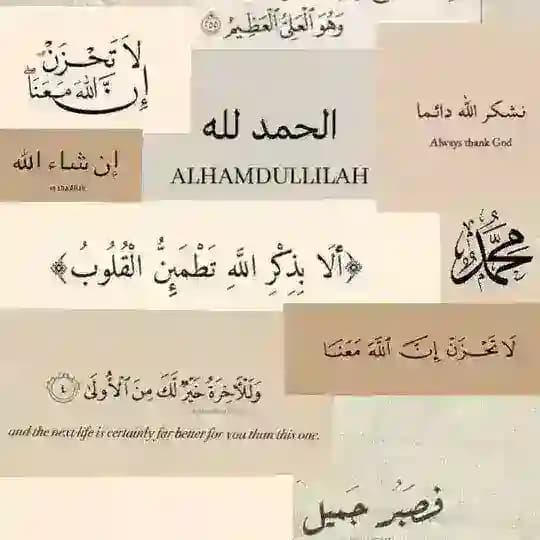 وَهُوَ ٱلْعَلِىُّ ٱلْعَظِيمُ ۝٢٥٥
لَا تَحْزَنْ
إِنَّ اللهَ مَعَنَا
الحمد لله
ALHAMDULLILAH
نشكر الله دائما
Always thank God
إن شاء الله
﴿أَلَا بِذِكْرِ اللَّهِ تَطْمَئِنُّ الْقُلُوبُ﴾
محمد
لَا تَحْزَنْ إِنَّ اللَّهَ مَعَنَا
وَلَلْآخِرَةُ خَيْرٌ لَّكَ مِنَ ٱلْأُولَىٰ ۝٤
and the next life is certainly far better for you than this one.
فصبرٌ جميل